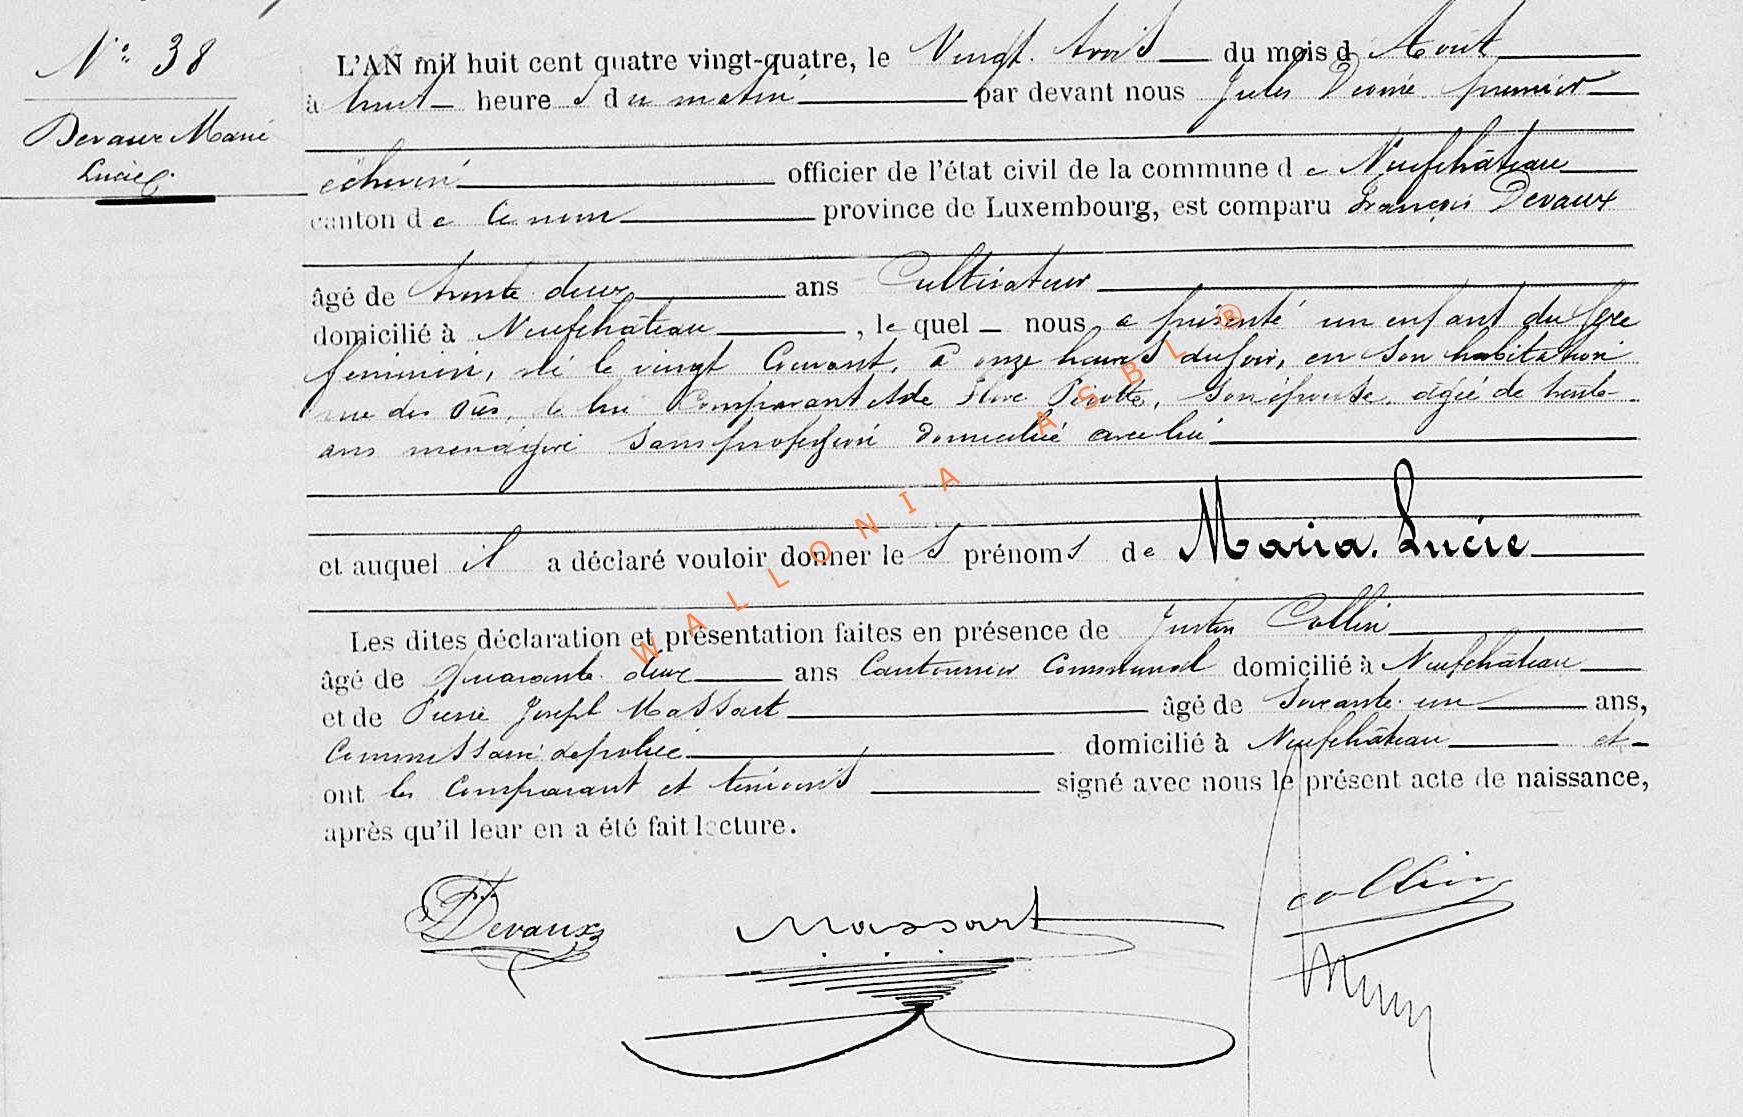 N° 38
Devaux Marie
Lucie.
L'AN mil huit cent quatre vingt-quatre, le Vingt trois du mois d Août
à huit heure s du matin par devant nous Jules premier
échevin officier de l'état civil de la commune de Neufchâteau
canton de ce nom province de Luxembourg, est comparu François Devaux
âgé de trente deux ans Cultivateur
domicilié à Neufchâteau, le quel nous a présenté un enfant du sexe
féminin, né le vingt Courant, à onze heures du soir, en son habitation
rue des de lui Comparant et de Pirotte, son épouse, âgée de trente
ans ménagère sans profession domiciliée avec lui
et auquel il a déclaré vouloir donner le s prénoms de Maria. Lucie
Les dites déclaration et présentation faites en présence de Justin Collin
âgé de quarante deux ans Cantonnier Communal domicilié à Neufchâteau
et de Pierre Joseph Massart âgé de soixante un ans,
Commissaire de police domicilié à Neufchâteau et
ont les Comparant et témoins signé avec nous le présent acte de naissance,
après qu'il leur en a été fait lecture.
Devaux Massart Collin
WALLONIA ASBL ®